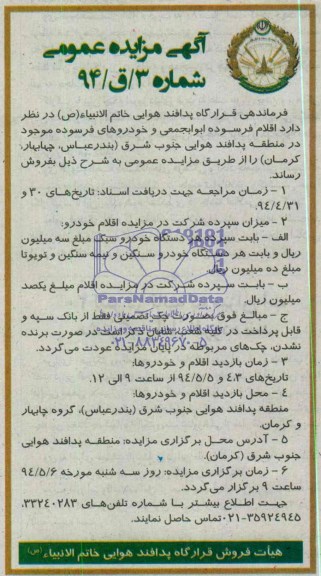 آگهی مزایده عمومی
شماره ۳/ق/۹۴
فرماندهی قرارگاه پدافند هوایی خاتم الانبیاء(ص) در نظر
دارد اقلام فرسوده ابوابجمعی و خودروهای فرسوده موجود
در منطقه پدافند هوایی جنوب شرق (بندرعباس، چابهار،
کرمان) را از طریق مزایده عمومی به شرح ذیل بفروش
رساند.
۱ – زمان مراجعه جهت دریافت اسناد: تاریخ‌های ۳۰ و
۹۴/۴/۳۱.
۲ – میزان سپرده شرکت در مزایده اقلام خودرو:
الف – بابت سپرده هر دستگاه خودرو سبک مبلغ سه میلیون
ریال و بابت هر دستگاه خودرو سنگین و نیمه سنگین و تویوتا
مبلغ ده میلیون ریال.
ب – بابت سپرده شرکت در مزایده اقلام مبلغ یکصد
میلیون ریال.
ParsNamadData
ج – مبالغ فوق بصورت چک تضمینی فقط از بانک سپه و
قابل پرداخت در کلیه شعب ذکر است در صورت برنده
نشدن، چک‌های مربوطه در پایان مزایده عودت می‌گردد.
۰۲۱-۸۸۳۴۹۶۷۰-۵
۳ – زمان بازدید اقلام و خودروها:
تاریخ‌های ۴،۳ و ۹۴/۵/۵ از ساعت ۹ الی ۱۲.
۴ – محل بازدید اقلام و خودروها:
منطقه پدافند هوایی جنوب شرق (بندرعباس)، گروه چابهار
و کرمان.
۵ – آدرس محل برگزاری مزایده: منطقه پدافند هوایی
جنوب شرق (کرمان).
۶ – زمان برگزاری مزایده: روز سه شنبه مورخه ۹۴/۵/۶
ساعت ۹ برگزار می‌گردد.
جهت اطلاع بیشتر با شماره تلفن‌های ۳۳۲۴۰۲۸۳،
۰۲۱-۳۵۹۲۴۹۴۵ تماس حاصل نمایند.
هیأت فروش قرارگاه پدافند هوایی خاتم الانبیاء (ص)